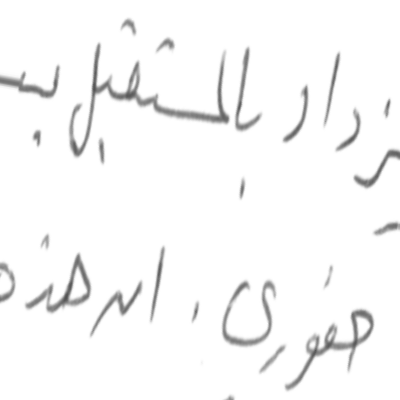 يزداد بالمستقبل بـ
حفوري ، ان هذه